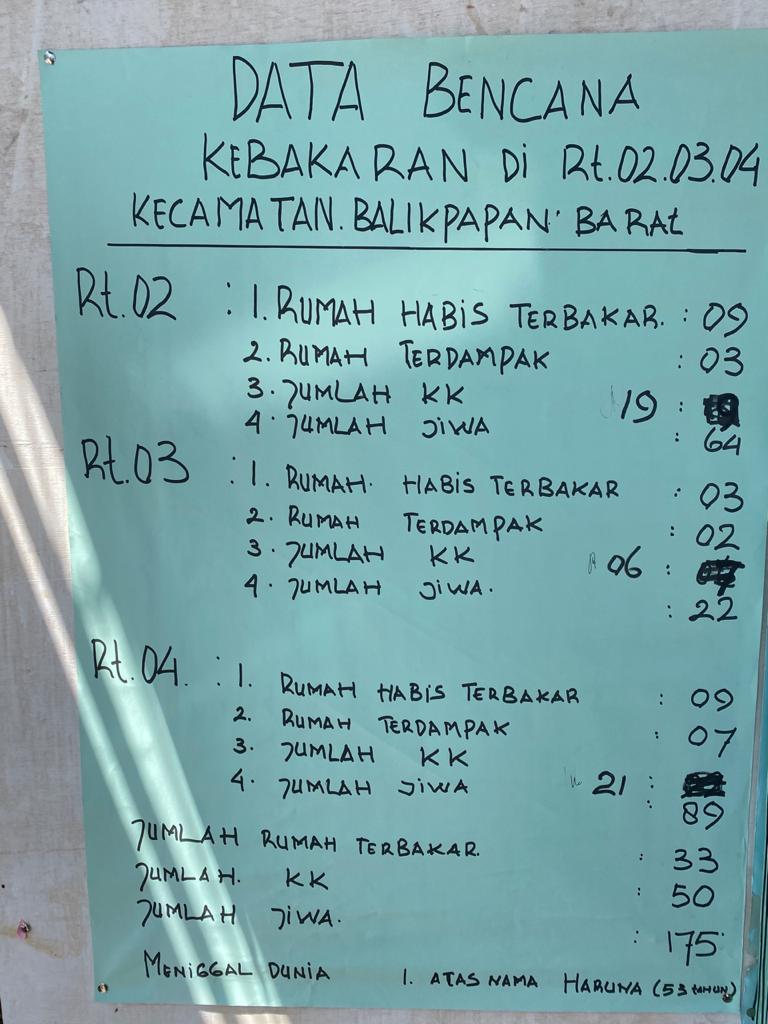 DATA BENCANA
KEBAKARAN Di Rt.02.03.04
KECAMATAN.BALIKPAPAN BARAt
Rt.02 : 1. RUMAH HABiS TERBAKAR. : 09
2. RUMAH TERDAMPAK : 03
3. JUMLAH KK 19 :
4. JUMLAH JiWA : 64
Rt.03 : 1. RUMAH. HABiS TERBAKAR : 03
2. RUMAH TERDAMPAK : 02
3. JUMLAH KK 06 :
4. JUMLAH JiWA. : 22
Rt.04. : 1. RUMAH HABiS TERBAKAR : 09
2. RUMAH TERDAMPAK : 07
3. JUMLAH KK 21 :
4. JUMLAH JiWA : 89
JUMLAH RUMAH TERBAKAR. : 33
JUMLAH. KK : 50
JUMLAH JiWA. : 175
MENiGGAL DUNiA 1. ATAS NAMA HARUNA (53 tAHUN)